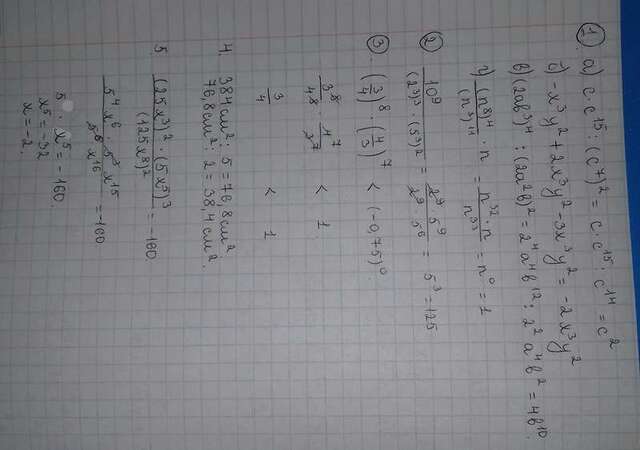 1 а) c·c¹⁵:(c⁷)² = c·c¹⁵:c¹⁴ = c²
б) -x³y²+2x³y²-3x³y² = -2x³y²
в) (2ab³)⁴:(2a²b)² = 2⁴a⁴b¹²:2²a⁴b² = 4b¹⁰.
г) (n⁸)⁴/(n³)¹¹ · n = n³²·n/n³³ = n⁰ = 1
2 10⁹/((2³)³·(5³)²) = 2⁹·5⁹/(2⁹·5⁶) = 5³ = 125
3 (3/4)⁸·(4/3)⁷ < (-0,75)⁰
3⁸/4⁸ · 4⁷/3⁷ < 1
3/4 < 1
4. 384см²:5=76,8см²
76,8см²:2=38,4см².
5. (25x³)²·(5x⁵)³/(125x⁸)² = -160.
5⁴x⁶·5³x¹⁵/(5⁶x¹⁶) = -160
5·x⁵=-160.
x⁵=-32
x=-2.